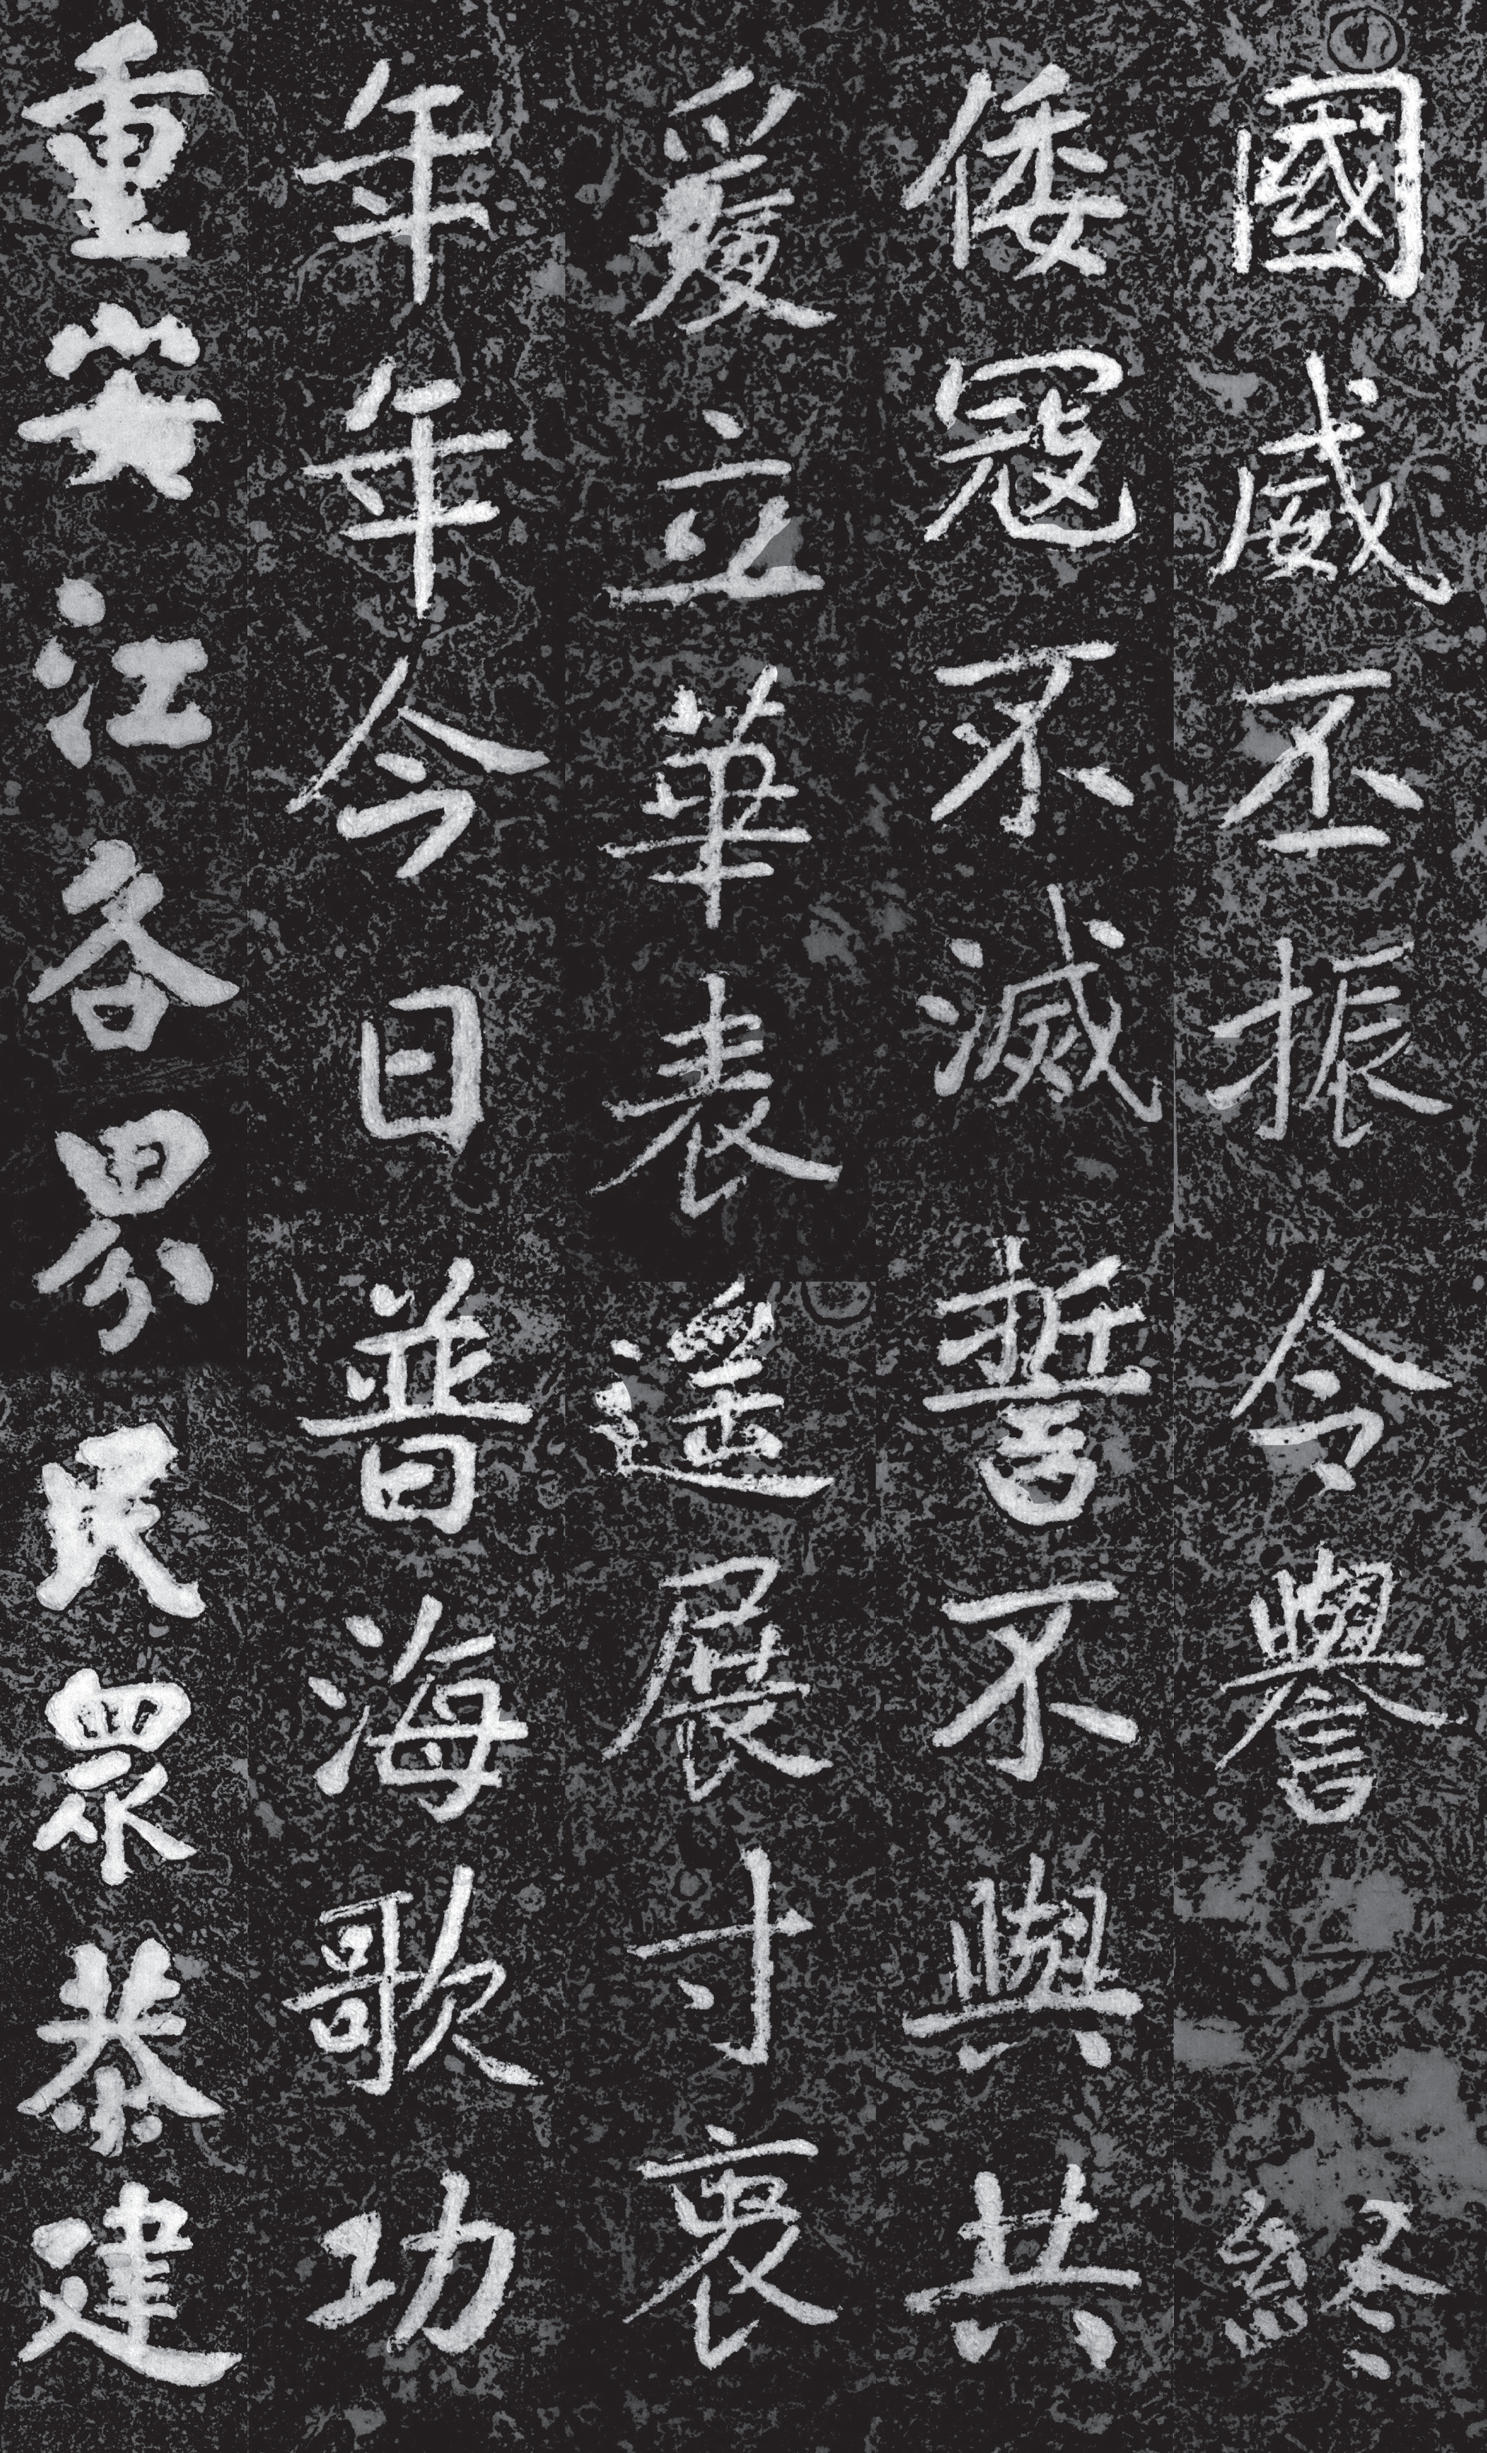 國威丕振令譽終
倭寇不滅誓不與共
爰立華表遥展寸衷
年年今日普海歌功
重安江各界民眾恭建